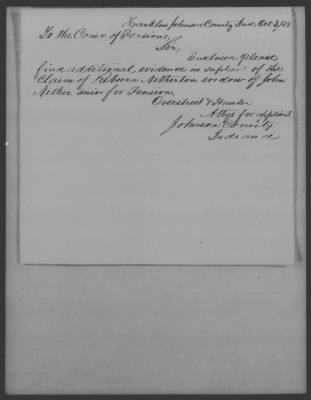 Franklin Johnson County Ind Oct 3/53
To the Comr. of Pensions,
Sir,
Enclosed please
find additional evidence in support of the
Claim of Netherton widow of John
for Pension
Overstreet & Hunter
Attys for applicant
Johnson County
Indiana